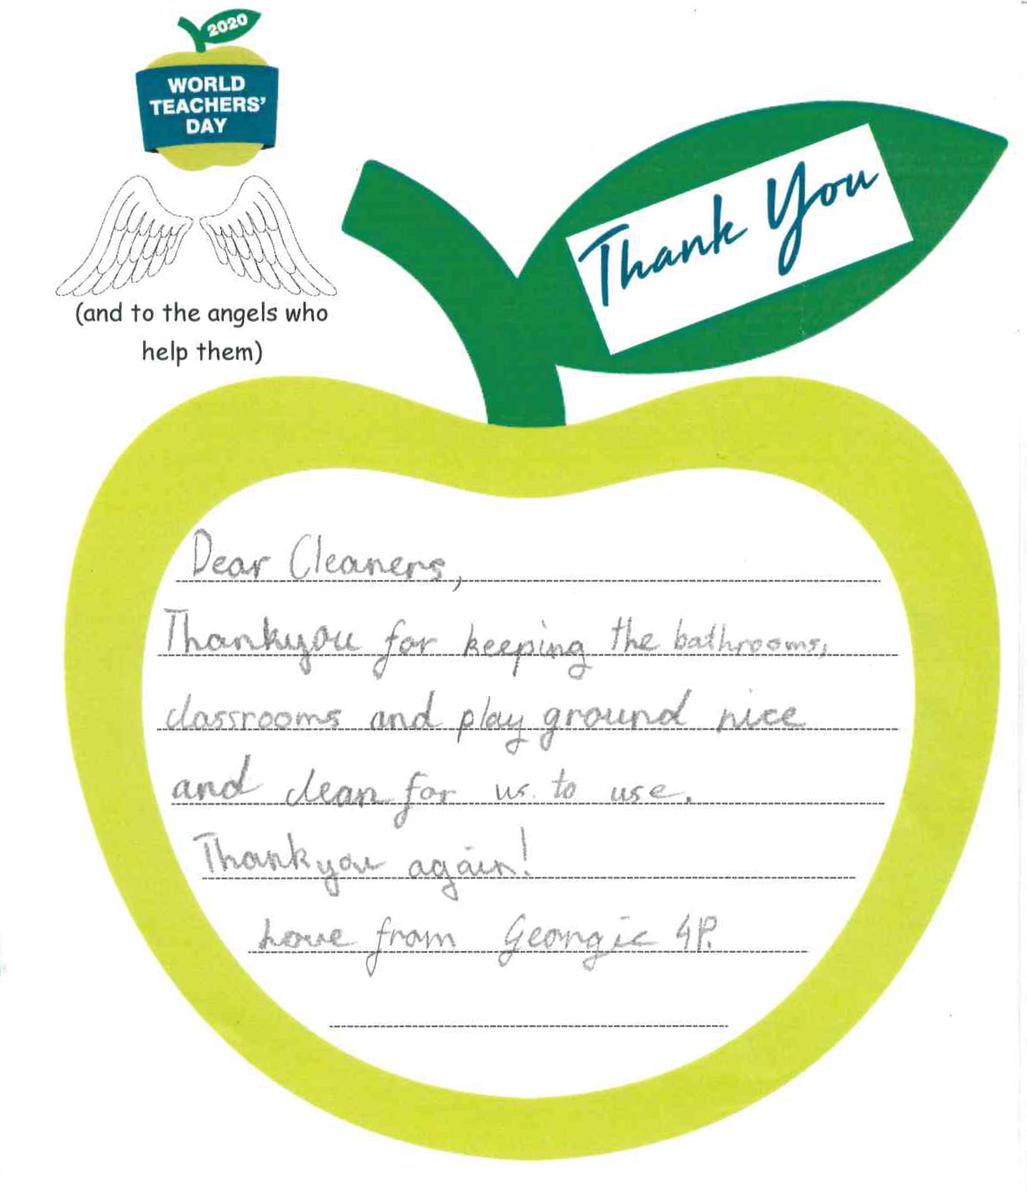 2020
WORLD
TEACHERS'
DAY
(and to the angels who
help them)
Thank You
Dear Cleaners,
Thankyou for keeping the bathrooms,
classrooms and play ground nice
and clean for us to use.
Thankyou again!
Love from Georgie 4P.